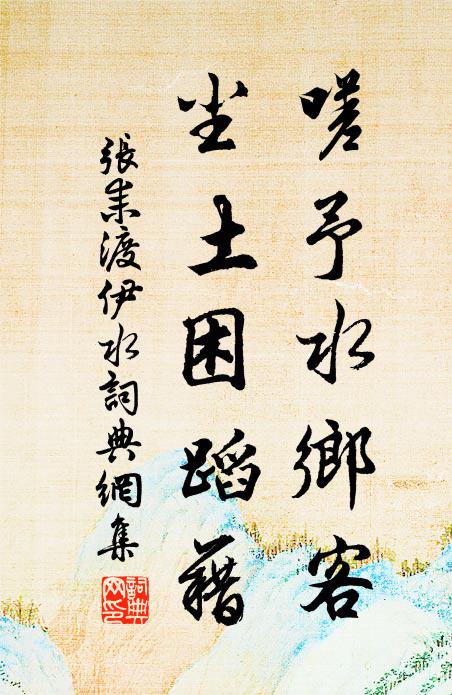 嗟予水鄉客
尘土困蹈藉
張耒渡伊水詞典網集
詞典网印